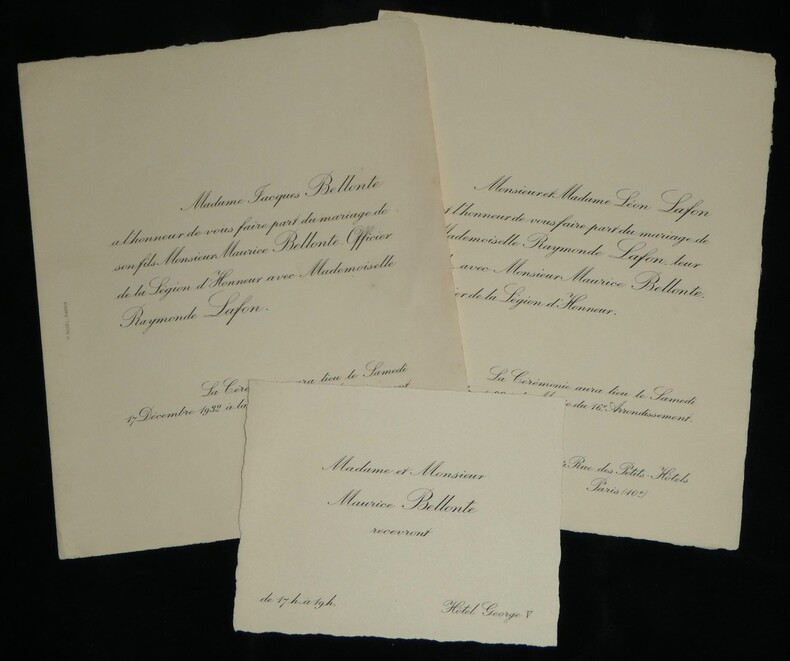 Madame Jacques Bellonte
a l'honneur de vous faire part du mariage de
son fils Monsieur Maurice Bellonte Officier
de la Légion d'Honneur avec Mademoiselle
Raymonde Lafon.
La Cér
aura lieu le Samedi
17 Décembre 1932 à la
Monsieur et Madame Léon Lafon
t l'honneur de vous faire part du mariage de
Mademoiselle Raymonde Lafon, leur
avec Monsieur Maurice Bellonte,
ier de la Légion d'Honneur.
La Cérémonie aura lieu le Samedi
du 16e Arrondissement.
Rue des Petits-Hôtels
Paris (10e)
Madame et Monsieur
Maurice Bellonte
recevront
de 17 h. à 19 h.
Hôtel George V